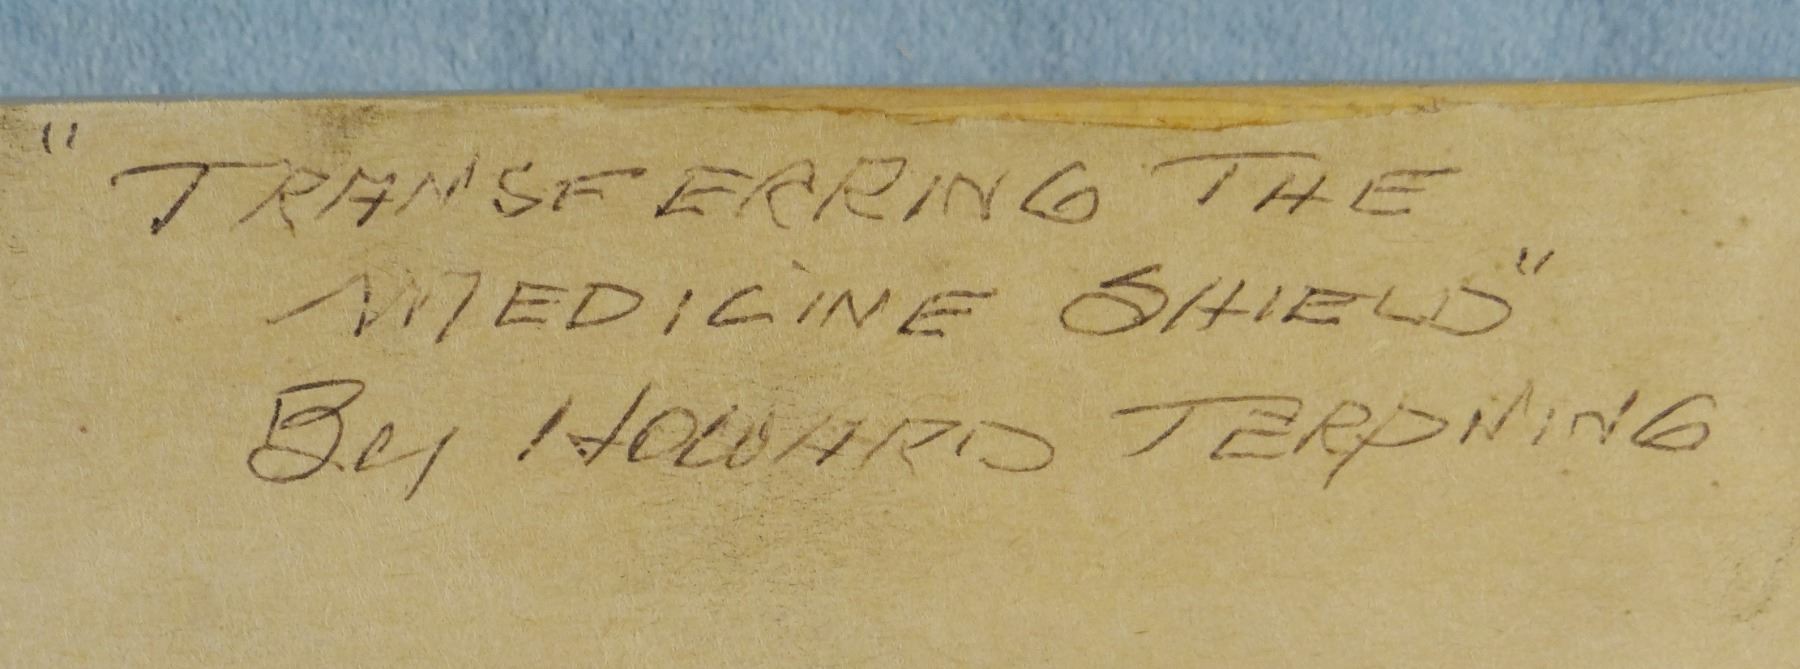 "TRANSFERRING THE
MEDICINE SHIELD"
By HOWARD TERPNING